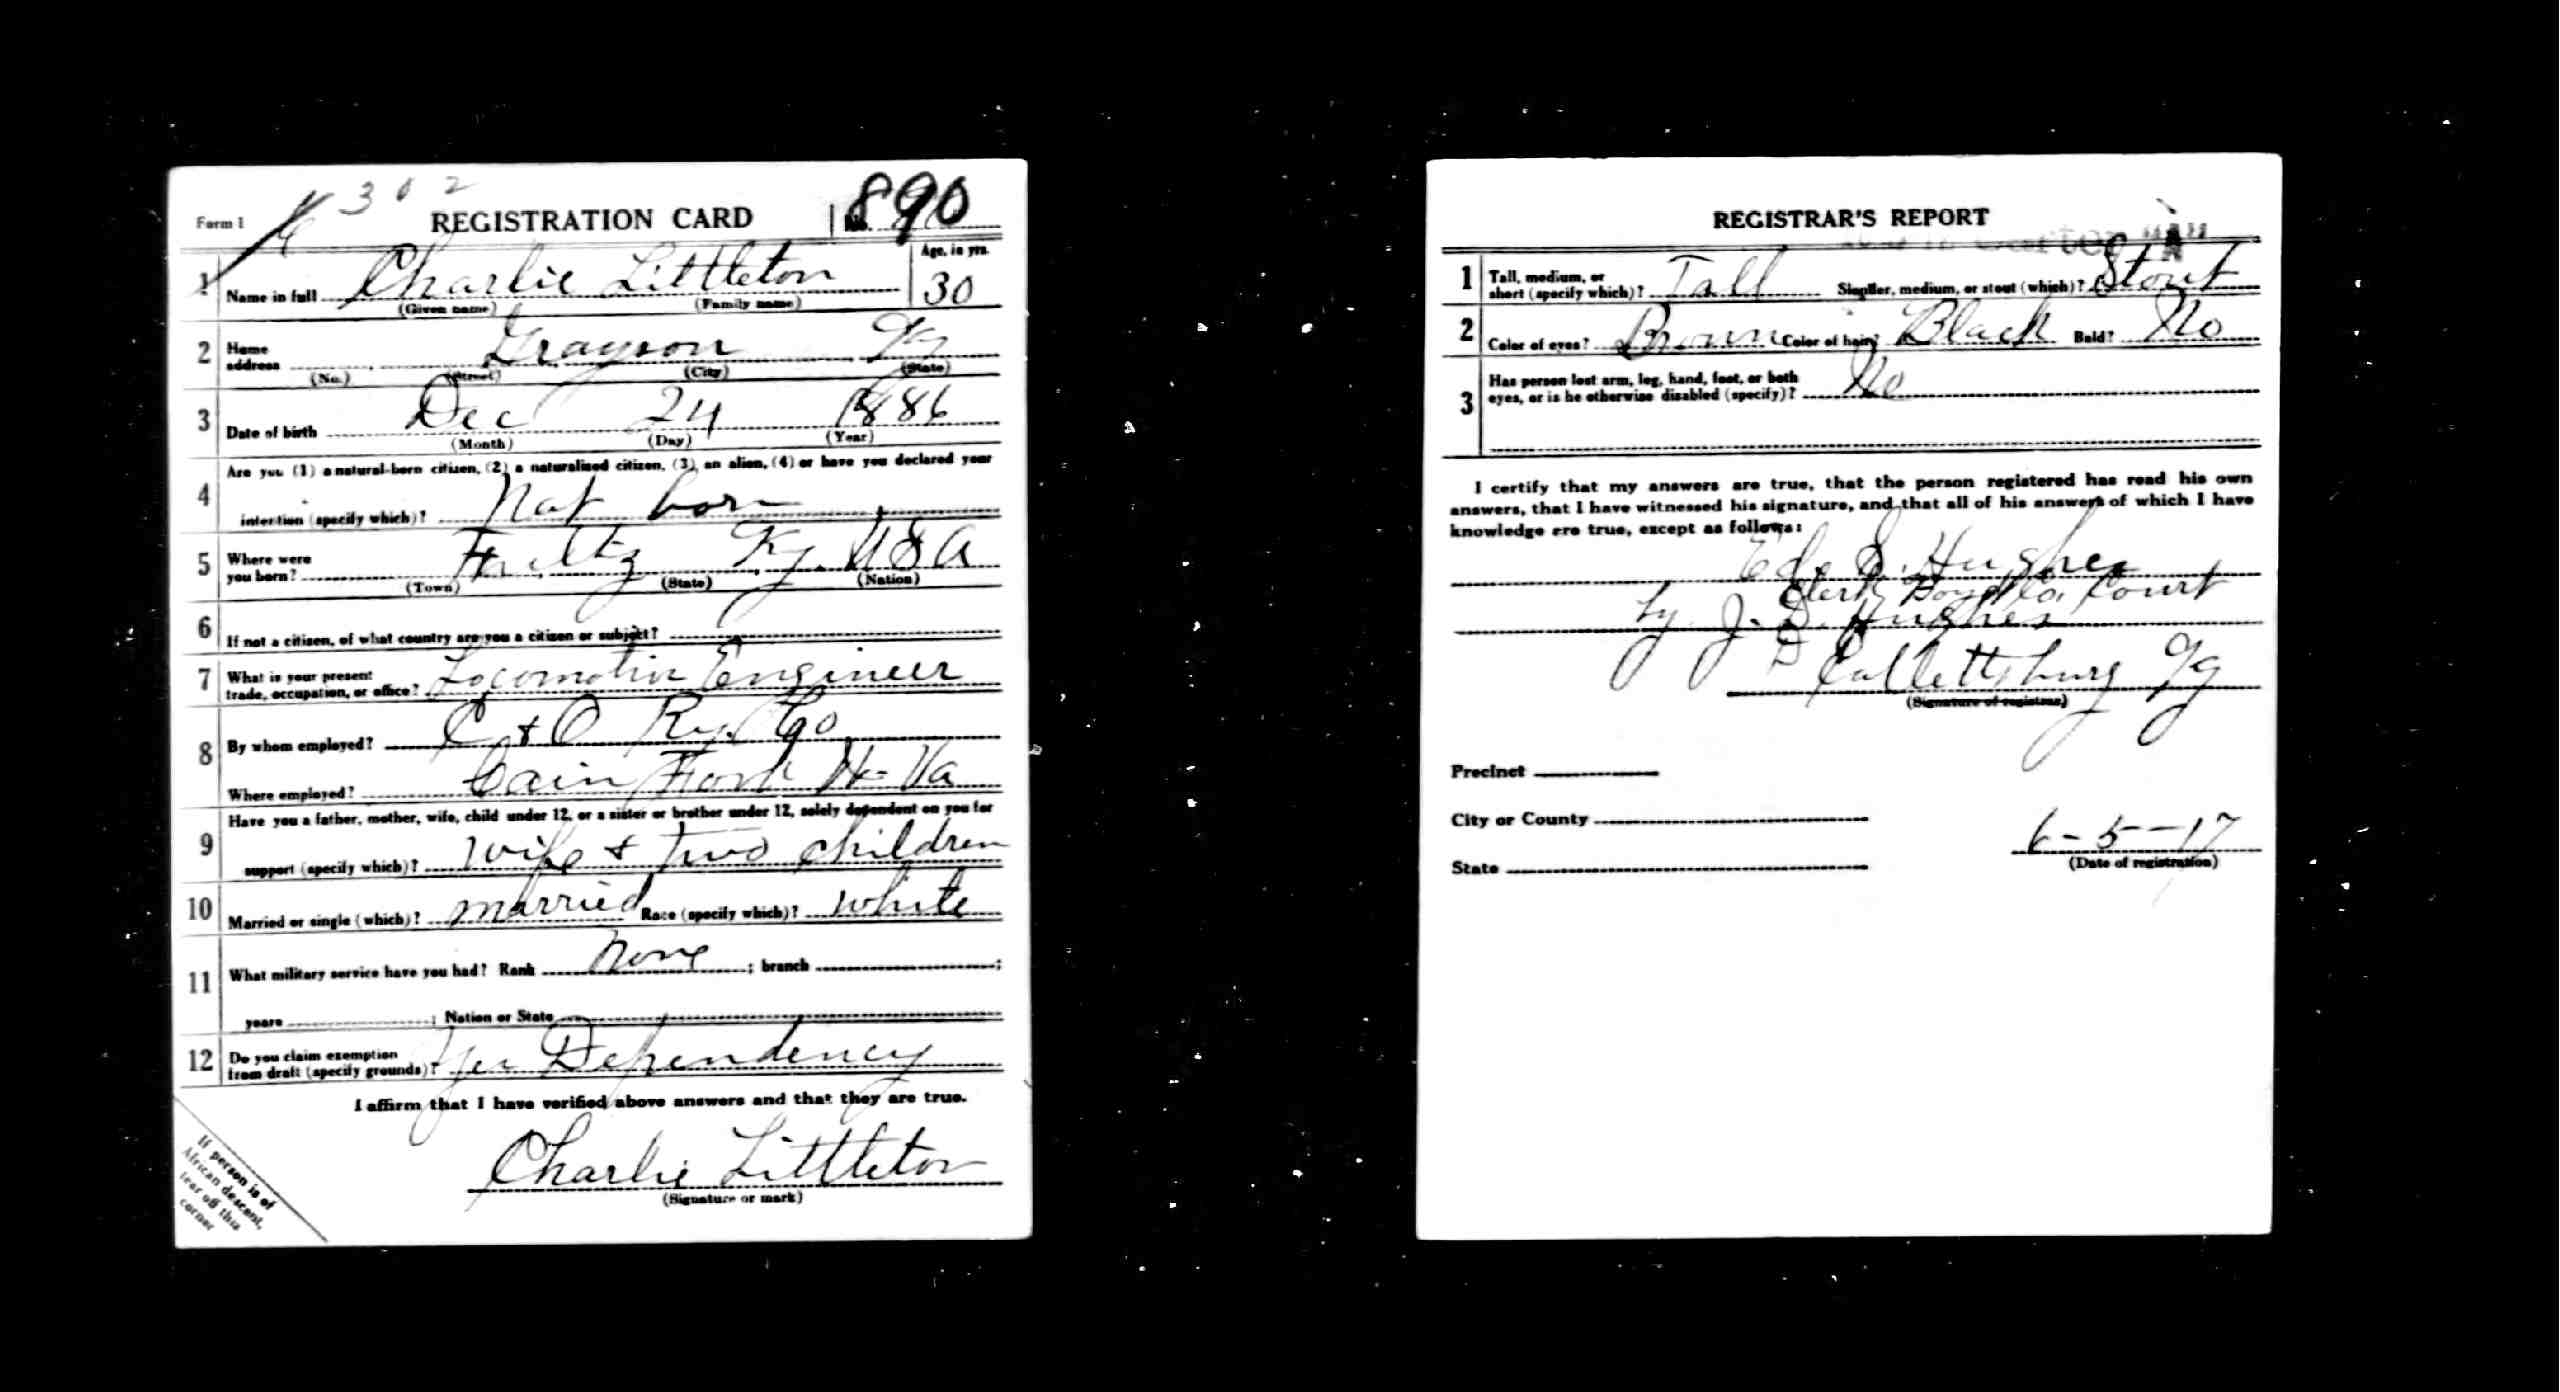 302
Form 1 REGISTRATION CARD No. 890
1 Name in full Charlie Littleton Age, in yrs. 30
(Given name) (Family name)
2 Home address Grayson Ky
(No.) (Street) (City) (State)
3 Date of birth Dec 24 1886
(Month) (Day) (Year)
4 Are you (1) a natural-born citizen, (2) a naturalized citizen, (3) an alien, (4) or have you declared your
intention (specify which)? Nat born
5 Where were you born? Fultz Ky. USA
(Town) (State) (Nation)
6 If not a citizen, of what country are you a citizen or subject?
7 What is your present trade, occupation, or office? Locomotive Engineer
8 By whom employed? C & O Ry. Co
Where employed? Va
9 Have you a father, mother, wife, child under 12, or a sister or brother under 12, solely dependent on you for
support (specify which)? Wife & two children
10 Married or single (which)? married Race (specify which)? white
11 What military service have you had? Rank none ; branch ;
years ; Nation or State
12 Do you claim exemption from draft (specify grounds)? Yes Dependency
I affirm that I have verified above answers and that they are true.
Charlie Littleton
(Signature or mark)
If person is of African descent, tear off this corner
REGISTRAR'S REPORT
"A"
1 Tall, medium, or short (specify which)? Tall Slender, medium, or stout (which)? Stout
2 Color of eyes? Brown Color of hair? Black Bald? No
3 Has person lost arm, leg, hand, foot, or both eyes, or is he otherwise disabled (specify)? No
I certify that my answers are true, that the person registered has read his own
answers, that I have witnessed his signature, and that all of his answers of which I have
knowledge are true, except as follows:
S. Hughes
Clerk Boyd Co. Court
by J. D. Hughes
D
Catlettsburg Ky
(Signature of registrar)
Precinct
City or County
State
6-5-17
(Date of registration)